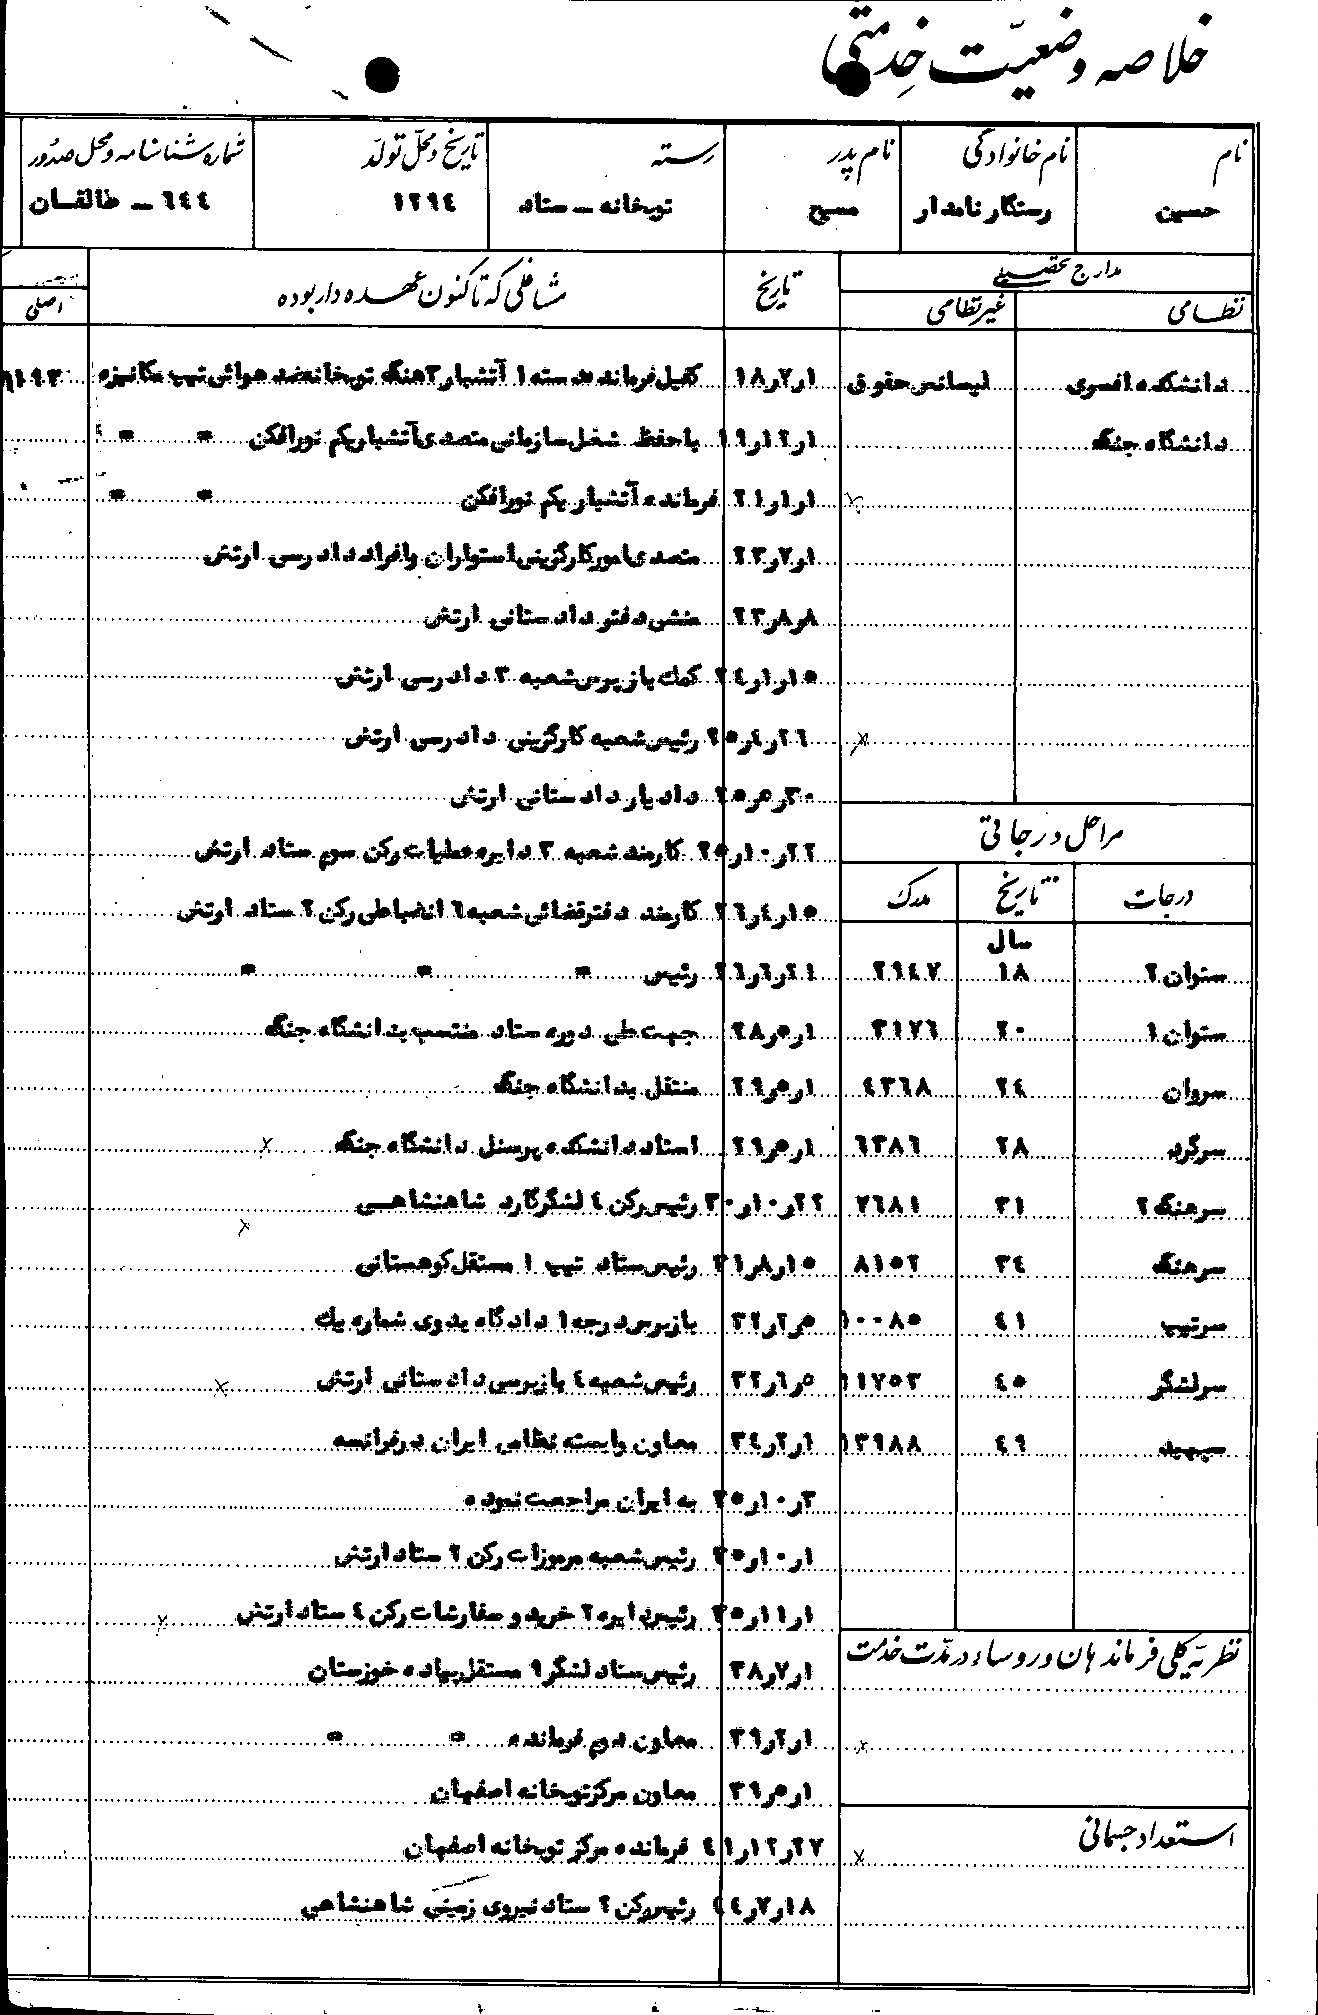 خلاصه وضعیّت خدمتی
نام
حسین
نام خانوادگی
رستگار نامدار
نام پدر
مسیح
رسته
توپخانه ـ ستاد
تاریخ و محلّ تولّد
۱۲۹٤
شماره شناسنامه و محل صدور
٦٤٤ ـ طالقان
مدارج تحصیلی
نظامی
غیر نظامی
دانشکده افسری
لیسانس حقوق
دانشگاه جنگ
مراحل درجاتی
درجات
تاریخ
مدرک
سال
ستوان ۲ ۱۸ ۲۹٤۷
ستوان ۱ ۲۰ ۳۱۷٦
سروان ۲٤ ٤۳٦۸
سرگرد ۲۸ ٦۳۸٦
سرهنگ ۲ ۳۱ ۷٦۸۱
سرهنگ ۳٤ ۸۱۵۲
سرتیپ ٤۱ ۱۰۰۸۵
سرلشگر ٤۵ ۱۱۷۵۳
سپهبد ٤۹ ۱۳۹۸۸
نظریّه کلی فرماندهان و روساء در مدّت خدمت
استعداد جسمانی
تاریخ
مشاغلی که تاکنون عهده دار بوده
اصلی
۱ر۷ر۱۸ کفیل فرمانده دسته ۱ آتشبار ۳ هنگ توپخانه ضد هوائی تیپ مکانیزه
۱ر۱۲ر۱۹ با حفظ شغل سازمانی متصدی آتشبار یکم نورافکن " "
۱ر۱ر۲۱ فرمانده آتشبار یکم نورافکن " "
۱ر۷ر۲۳ متصدی امور کارگزینی استواران و افراد دادرسی ارتش
۸ر۸ر۲۳ منشی دفتر دادستانی ارتش
۱۵ر۱ر۲٤ کمک بازپرس شعبه ۳ دادرسی ارتش
۲٦ر٤ر۲۵ رئیس شعبه کارگزینی دادرسی ارتش
۳۰ر۵ر۲۵ دادیار دادستانی ارتش
۲۲ر۱۰ر۲۵ کارمند شعبه ۳ دایره عملیات رکن سوم ستاد ارتش
۱۵ر٤ر۲٦ کارمند دفتر قضائی شعبه ٦ انضباطی رکن ۲ ستاد ارتش
۲۱ر٦ر۲٦ رئیس " " "
۱ر۵ر۲۸ جهت طی دوره ستاد منتسب بدانشگاه جنگ
۱ر۵ر۲۹ منتقل بدانشگاه جنگ
۱ر۵ر۲۹ استاد دانشکده پرسنل دانشگاه جنگ
۲۲ر۱۰ر۳۰ رئیس رکن ٤ لشگر گارد شاهنشاهی
۱۵ر۸ر۳۱ رئیس ستاد تیپ ۱ مستقل کوهستانی
۵ر۲ر۳۲ بازپرس درجه ۱ دادگاه بدوی شماره یک
۵ر٦ر۳۲ رئیس شعبه ٤ بازپرسی دادستانی ارتش
۱ر۲ر۳٤ معاون وابسته نظامی ایران در فرانسه
۳ر۱۰ر۳۵ به ایران مراجعت نموده
۱ر۱۰ر۳۵ رئیس شعبه مرموزات رکن ۲ ستاد ارتش
۱ر۱۱ر۳۵ رئیس دایره ۲ خرید و سفارشات رکن ٤ ستاد ارتش
۱ر۷ر۳۸ رئیس ستاد لشگر ۹ مستقل پیاده خوزستان
۱ر۲ر۳۹ معاون دوم فرمانده " "
۱ر۵ر۳۹ معاون مرکز توپخانه اصفهان
۲۷ر۱۲ر٤۱ فرمانده مرکز توپخانه اصفهان
۱۸ر۷ر٤٤ رئیس رکن ۲ ستاد نیروی زمینی شاهنشاهی